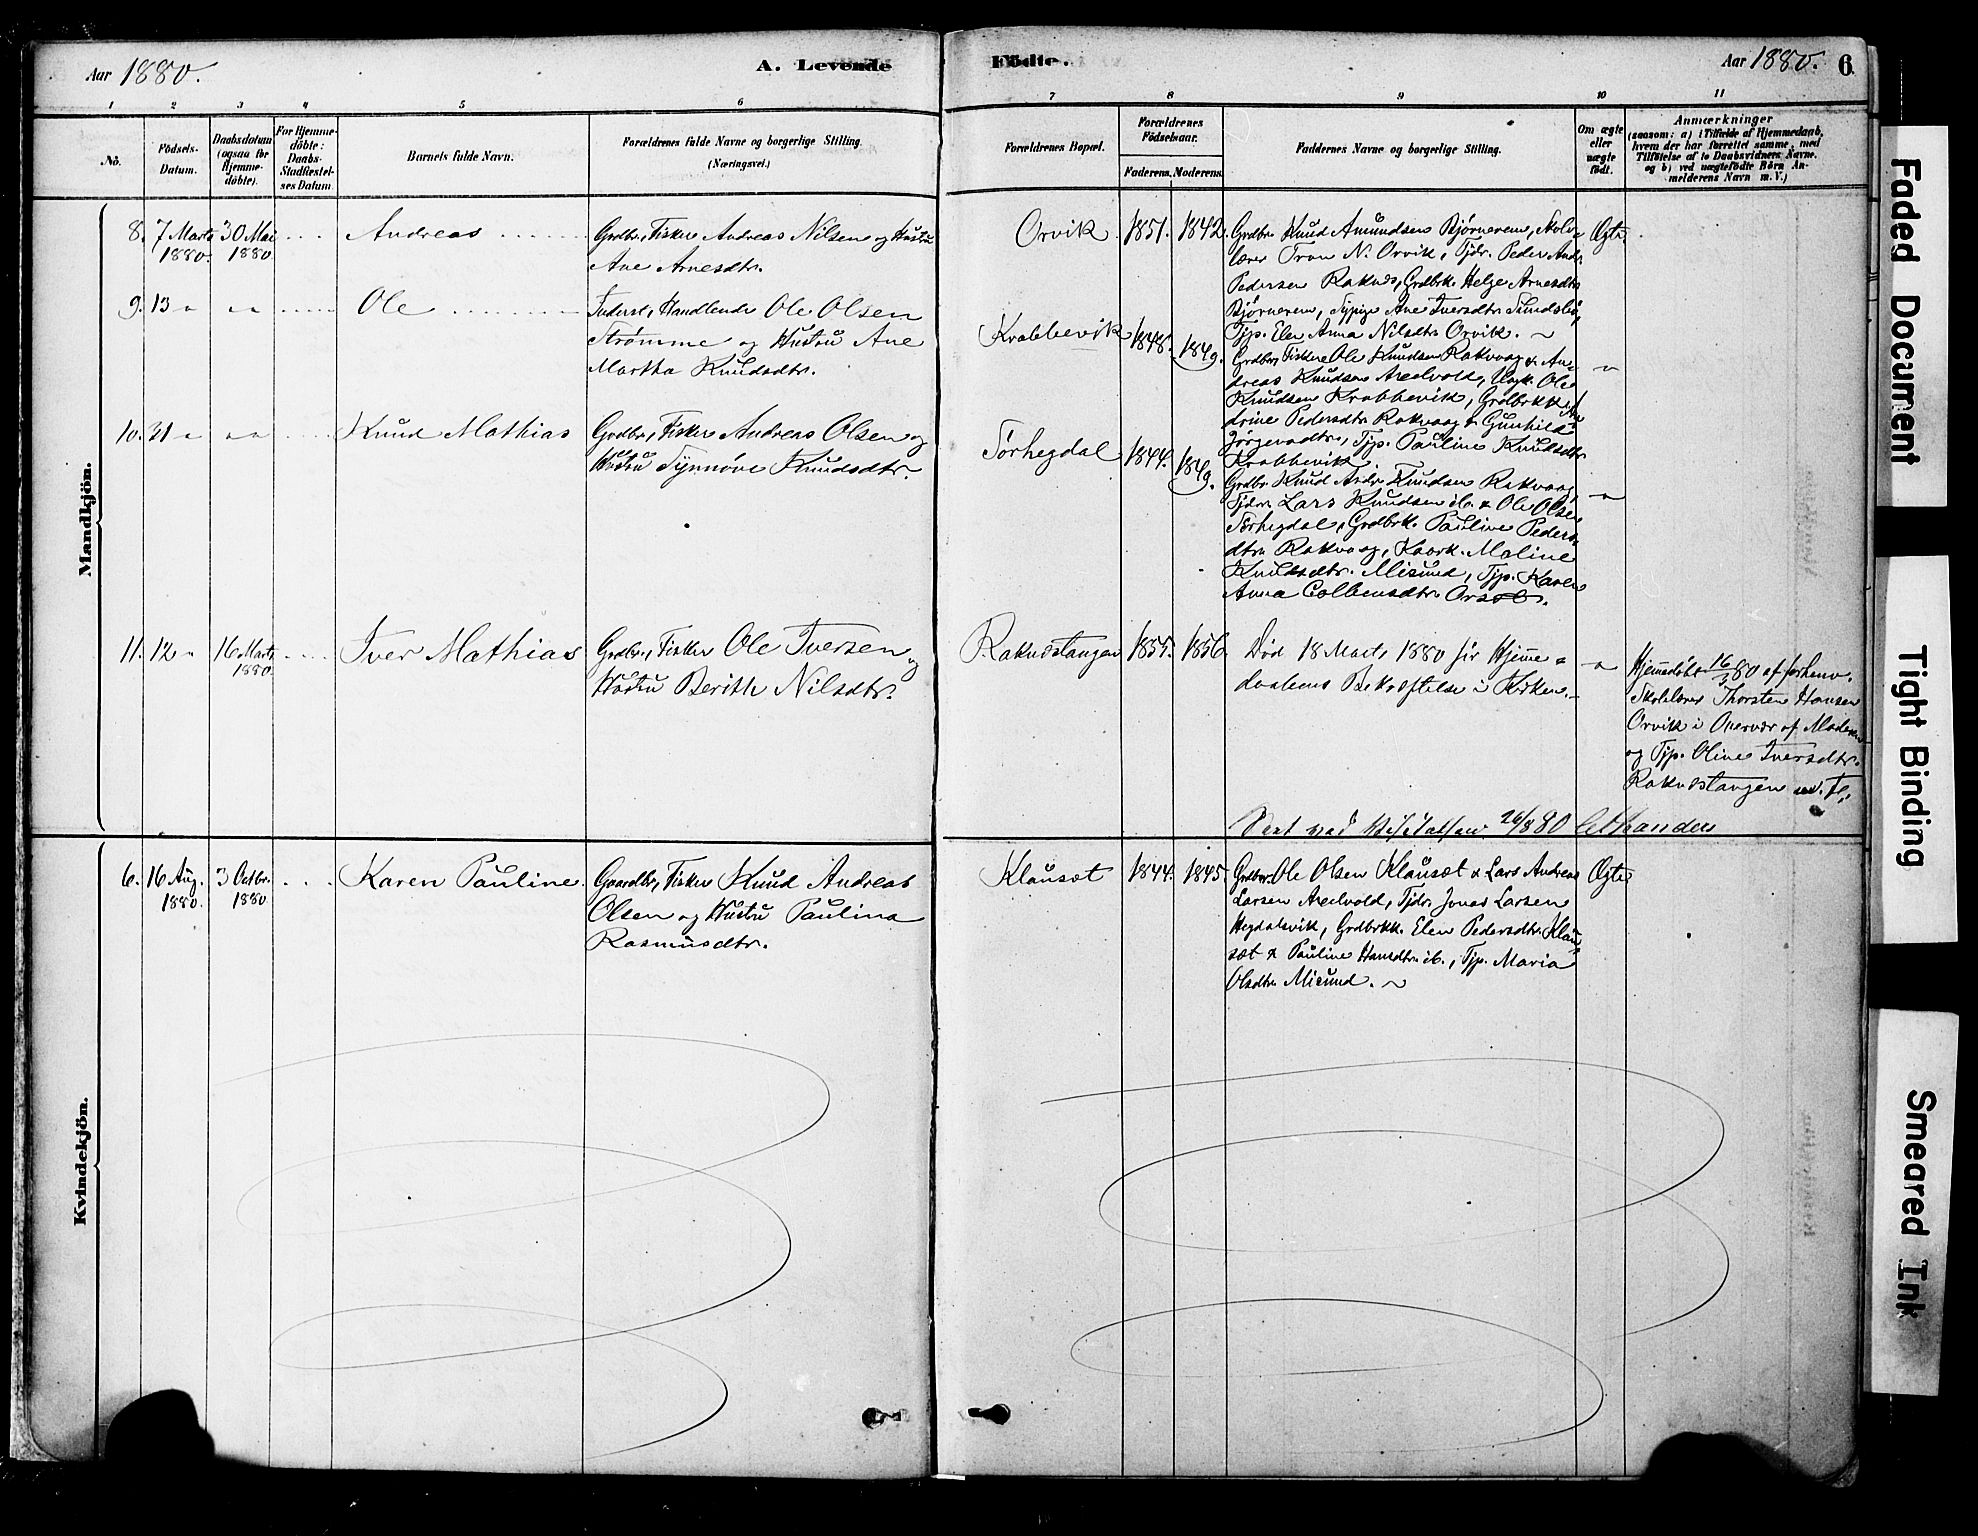 Aar 1880.
A. Levende
Födte.
Aar 1880. 6.
1 2 3 4 5 6 7 8 9 10 11
No.
Födsels-
Datum.
Daabsdatum
(ogsaa for
Hjemme-
döbte).
For Hjemme-
döbte:
Daabs-
Stadfæstel-
ses Datum.
Barnets fulde Navn.
Forældrenes fulde Navne og borgerlige Stilling
(Næringsvei.)
Forældrenes Bopæl.
Forældrenes
Födselsaar.
Faderens. Moderens.
Faddernes Navne og borgerlige Stilling.
Om ægte
eller
uægte
födt.
Anmærkninger
(saasom: a) i Tilfælde af Hjemmedaab,
hvem der har forrettet samme, med
Tilföielse af to Daabsvidners Navne.
og b) ved uægtefödte Börn An-
melderens Navn m. V.)
Mandkjön.
8. 7 Marts 1880. 30 Mai 1880 Andreas
Grdbr., Fisker Andreas Nilsen og Hustru
Ane Arnesdtr.
Orvik. 1851. 1842.
Grdbr. Knud Amundsen Bjørnerem, Skole-
lærer Tron N. Orvik, Tjdr. Peder Andr.
Pedersen Raknes, Grdbrk. Helge Arnesdtr
Bjørnerem, Sypige Ane Iversdtr.
Tjp. Elen Anna Nilsdtr Orvik.
Ægte.
9. 13 " " " Ole
Inderst, Handlende Ole Olsen
Strømme og Hustru Ane
Martha Knudsdtr.
Krabbevik 1848. 1849.
Grdbr., Fiskere Ole Knudsen Rakvaag & An-
dreas Knudsen Aredvold, Ungk. Ole
Knudsen Krabbevik, Grdbrkk.
drine Pedersdtr Rakvaag & Gunhild
Jørgensdtr., Tjp. Pauline Knudsdtr
Krabbevik
"
10. 31 " " " Knud Mathias
Grdbr., Fisker Andreas Olsen og
Hustru Synnøve Knudsdtr.
Tørhegdal 1844. 1849.
Grdbr. Knud Andr. Knudsen Rakvaag,
Tjdr. Lars Knudsen ib. & Ole Olsen
Tørhegdal, Grdbrk. Pauline Peders-
dtr. Rakvaag, Kaark. Maline
Knudsdtr. Misund, Tjp. Karen
Anna Colbensdtr
"
11. 12 " 16 Marts 1880. Iver Mathias
Grdbr., Fisker Ole Iversen og
Hustru Berith Nilsdtr.
Raknestangen 1855. 1856.
Død 18 Marts 1880 før Hjemme-
daabens Bekræftelse i Kirken.
"
Hjemmedøbt 16/3 80 af forhenv.
Skolelærer Thorsten Hansen
Orvik i Overvær af Moderen
og Tjp. Oline Iversdtr.
Raknestangen
26/8 80
Kvindekjön.
6. 16 Aug. 1880. 3 Octbr. 1880 Karen Pauline.
Gaardbr., Fisker Knud Andreas
Olsen og Hustru Paulina
Rasmusdtr.
Klauset 1844. 1845.
Grdbr. Ole Olsen Klausæt & Lars Andreas
Larsen Aredvold, Tjdr. Jonas Larsen
Hegdalsvik, Grdbrkk. Elen Pedersdtr. Klau-
sæt & Pauline Hansdtr. ib., Tjp. Maria
Olsdtr. Misund.
Ægte
Faded Document
Tight Binding
Smeared Ink